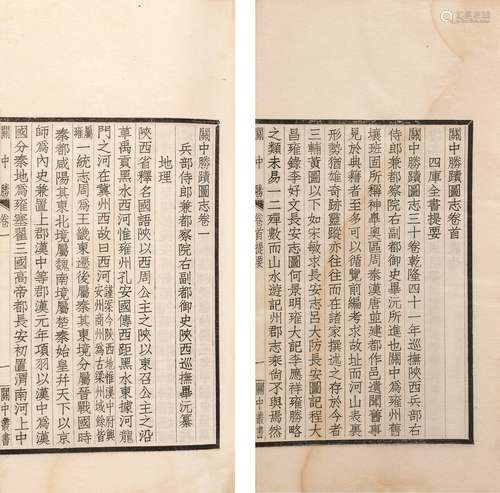 關中勝蹟圖志卷首
四庫全書提要
關中勝蹟圖志三十卷乾隆四十一年巡撫陝西兵部右
侍郎兼都察院右副都御史畢沅所進也關中爲雍州舊
壤班固所稱神皋奧區周秦漢唐並建都作邑遺聞舊事
見於典籍者至多可以循覽前編考求故址而河山表裏
形勢猶雄奇跡靈蹤亦往往而在諸家撰述之存於今者
三輔黃圖以下如宋敏求長安志呂大防長安圖記程大
昌雍錄李好文長安志圖何景明雍大記李應祥雍勝略
之類未易一二殫數而山水遊記州郡志乘尚不與焉然
關中勝 卷首提要 一 關中叢書
關中勝蹟圖志卷一
兵部侍郎兼都察院右副都御史陝西巡撫畢沅纂
地理
陝西省釋名國語陝以西周公主之陝以東召公主之沿
革禹貢黑水西河惟雍州孔安國傳西距黑水東據河龍
門之河在冀州西故曰西河謹案今陝西地惟漢中府興安州商州爲古梁州域餘皆
屬雍一統志周爲王畿東遷後屬秦其東境分屬晉戰國時
秦都咸陽其東北境屬魏南境屬楚秦始皇幷天下以京
師爲內史兼置上郡漢中等郡漢元年項羽以漢中爲漢
國分秦地爲雍塞翟三國高帝都長安初置渭南河上中
關中勝 卷一 一 關中叢書